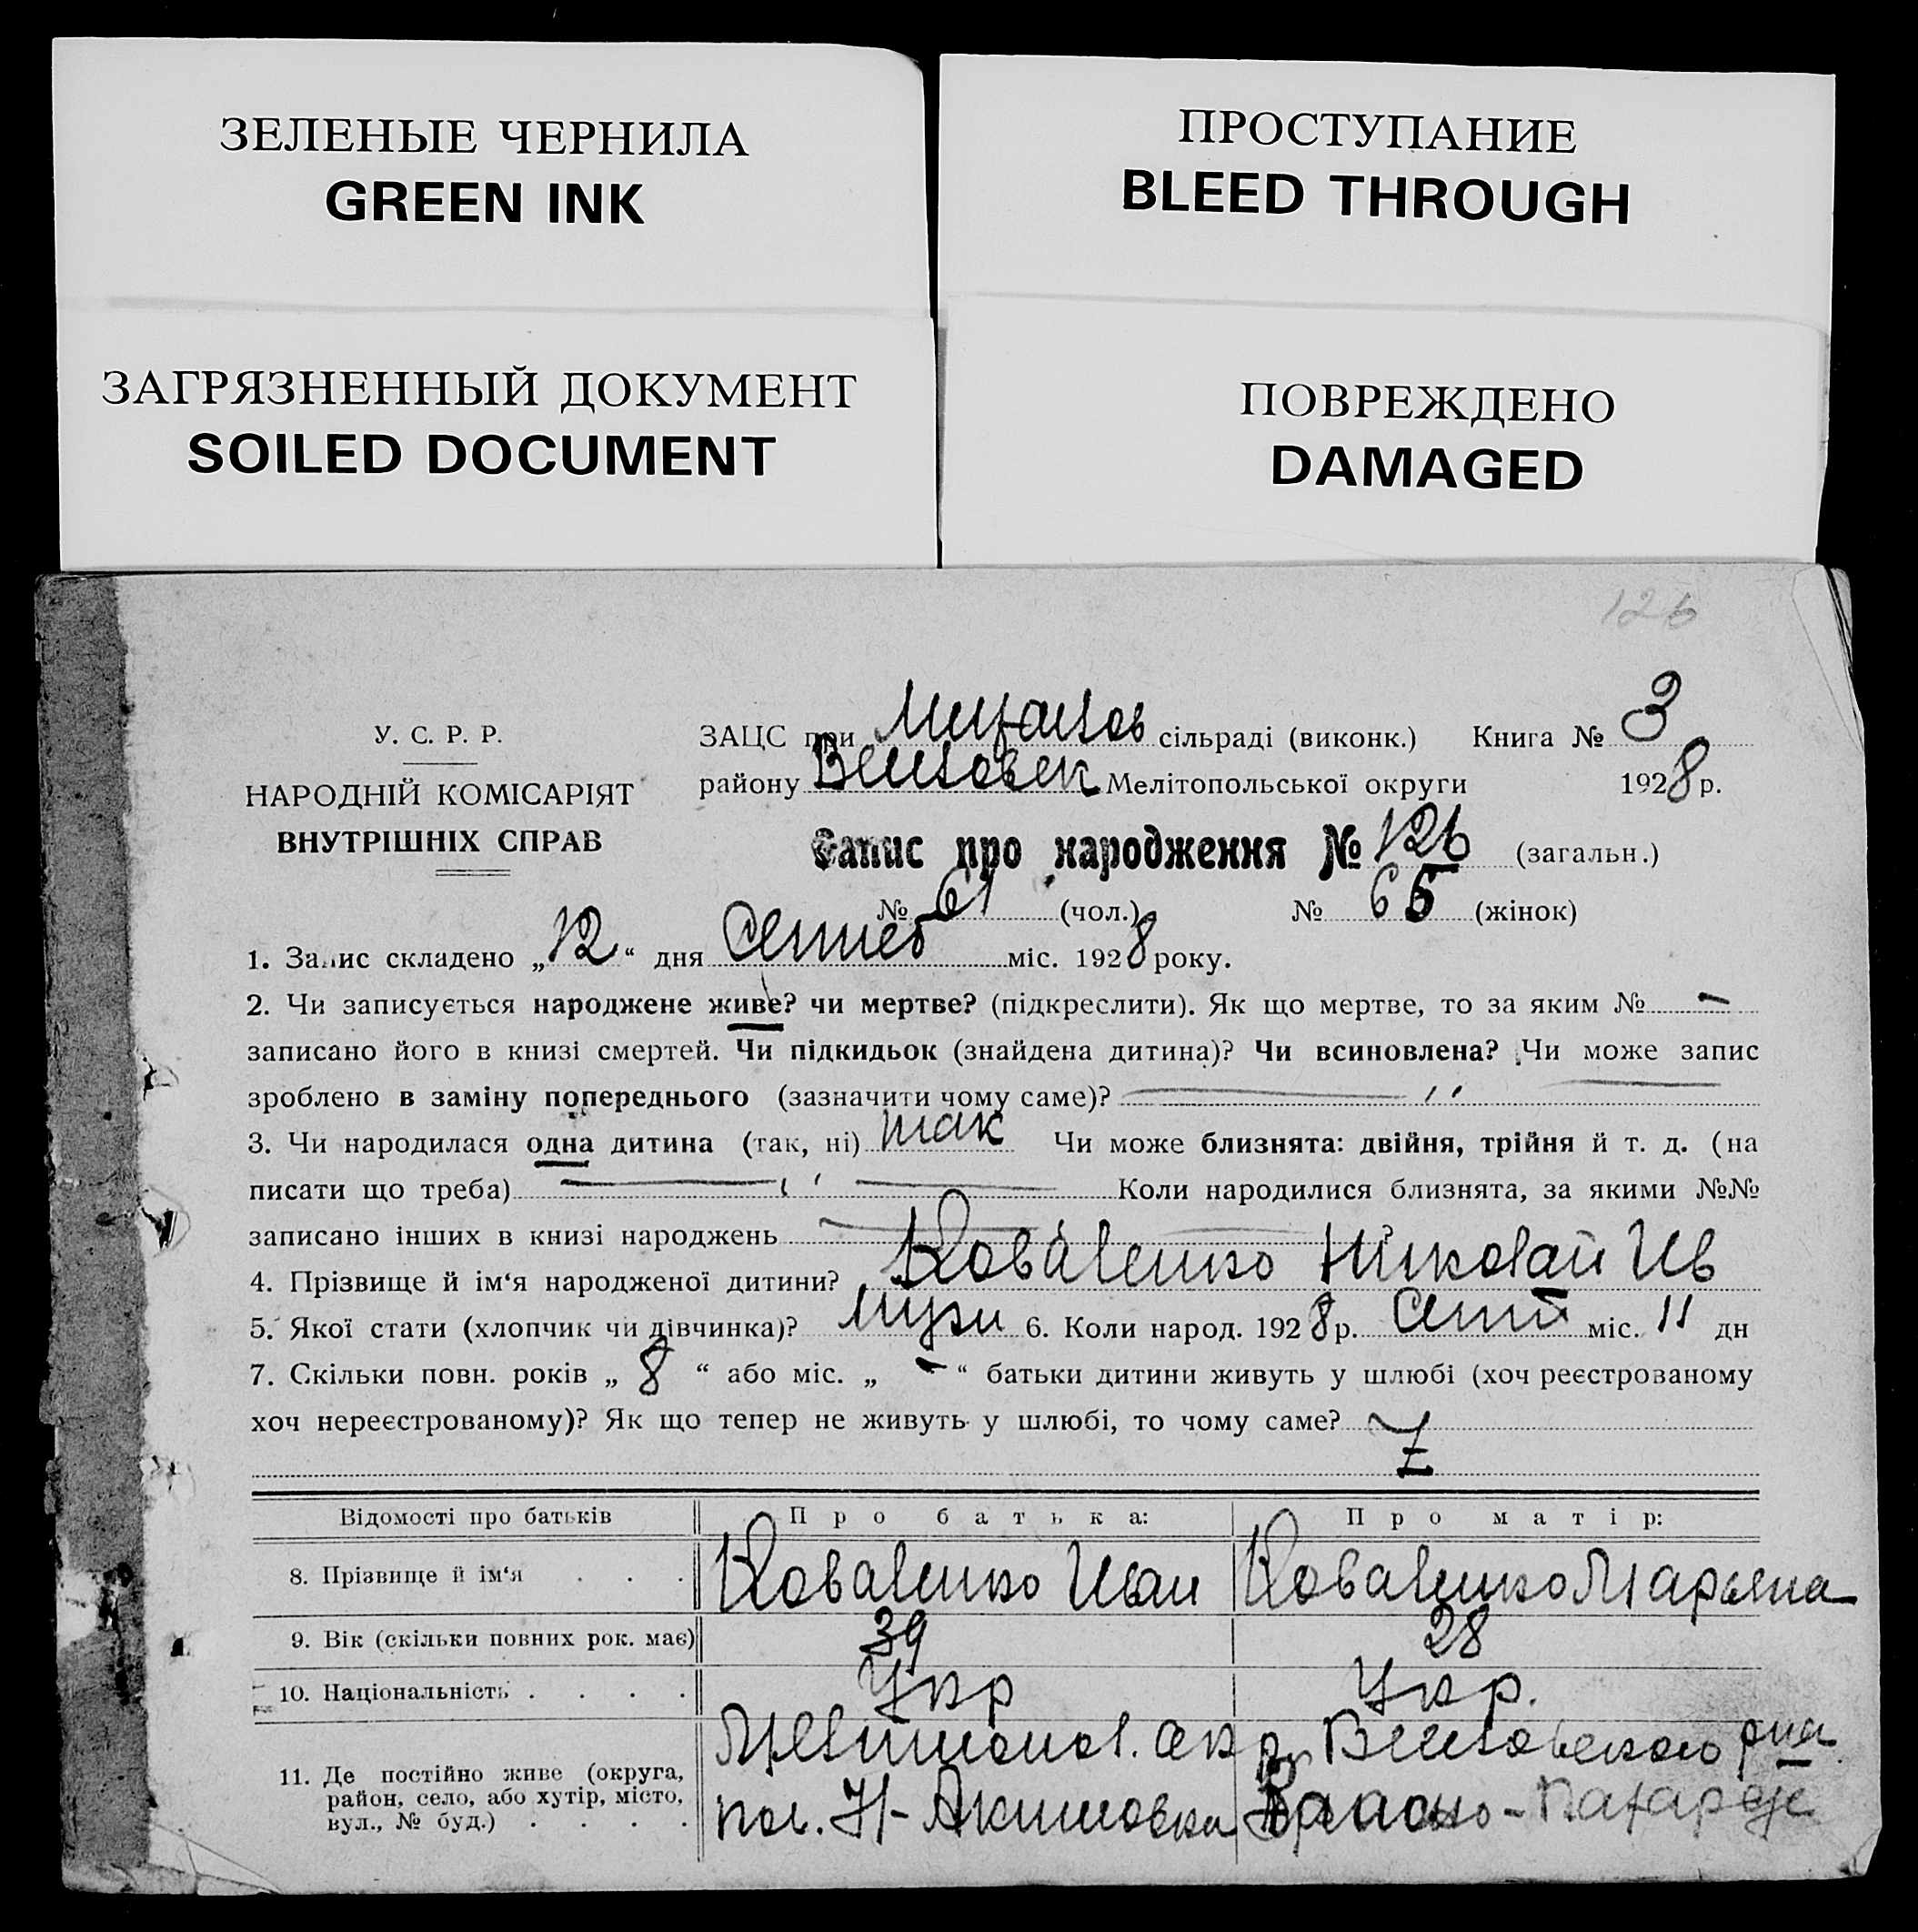 ЗЕЛЕНЫЕ ЧЕРНИЛА
GREEN INK
ПРОСТУПАНИЕ
BLEED THROUGH
ЗАГРЯЗНЕННЫЙ ДОКУМЕНТ
SOILED DOCUMENT
ПОВРЕЖДЕНО
DAMAGED
126
У. С. Р. Р.
НАРОДНІЙ КОМІСАРІЯТ
ВНУТРІШНІХ СПРАВ
ЗАЦС при сільраді (виконк.) Книга № 3
району Мелітопольської округи 1928 р.
Запис про народження № 126 (загальн.)
№ 61 (чол.) № 65 (жінок)
1. Запис складено „12“ дня міс. 1928 року.
2. Чи записується народжене живе? чи мертве? (підкреслити). Як що мертве, то за яким № —
записано його в книзі смертей. Чи підкидьок (знайдена дитина)? Чи всиновлена? Чи може запис
зроблено в заміну попереднього (зазначити чому саме)? — ʼʼ —
3. Чи народилася одна дитина (так, ні) так Чи може близнята: двійня, трійня й т. д. (на
писати що треба) — ʼʼ — Коли народилися близнята, за якими №№
записано інших в книзі народжень
4. Прізвище й ім‘я народженої дитини? Коваленко Николай Ив
5. Якої стати (хлопчик чи дівчинка)? Мужи 6. Коли народ. 1928 р. Сент міс. 11 дн
7. Скільки повн. років „ 8 “ або міс. „ — “ батьки дитини живуть у шлюбі (хоч реєстрованому
хоч нереєстрованому)? Як що тепер не живуть у шлюбі, то чому саме?
Відомості про батьків Про батька: Про матір:
8. Прізвище й ім‘я . . . Коваленко Иван Коваленко Марьяна
9. Вік (скільки повних рок. має) 39 28
10. Національність . . . . Укр Укр.
11. Де постійно живе (округа,
район, село, або хутір, місто,
вул., № буд.) . . . .
Мелитопол. окр. Веселовского рна
пос. Н-Акимовка